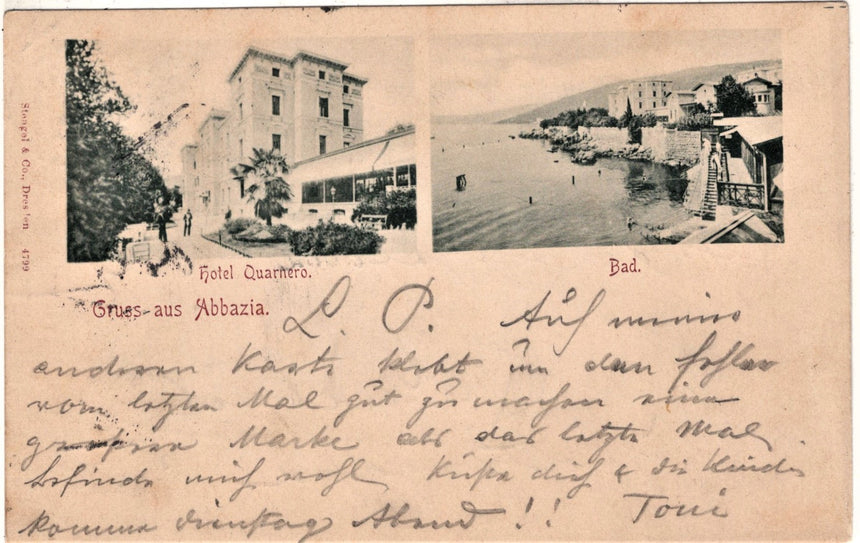 Stengel & Co., Dresden 4799
Hotel Quarnero.
Bad.
Gruss aus Abbazia.
L. P. Auf meine
anderen Karte klebt um den Fehler
vom letzten Mal gut zu machen eine
grössere Marke als das letzte Mal
befinde mich wohl Küsse dich & die Kinder
komme Dienstag Abend !! Toni